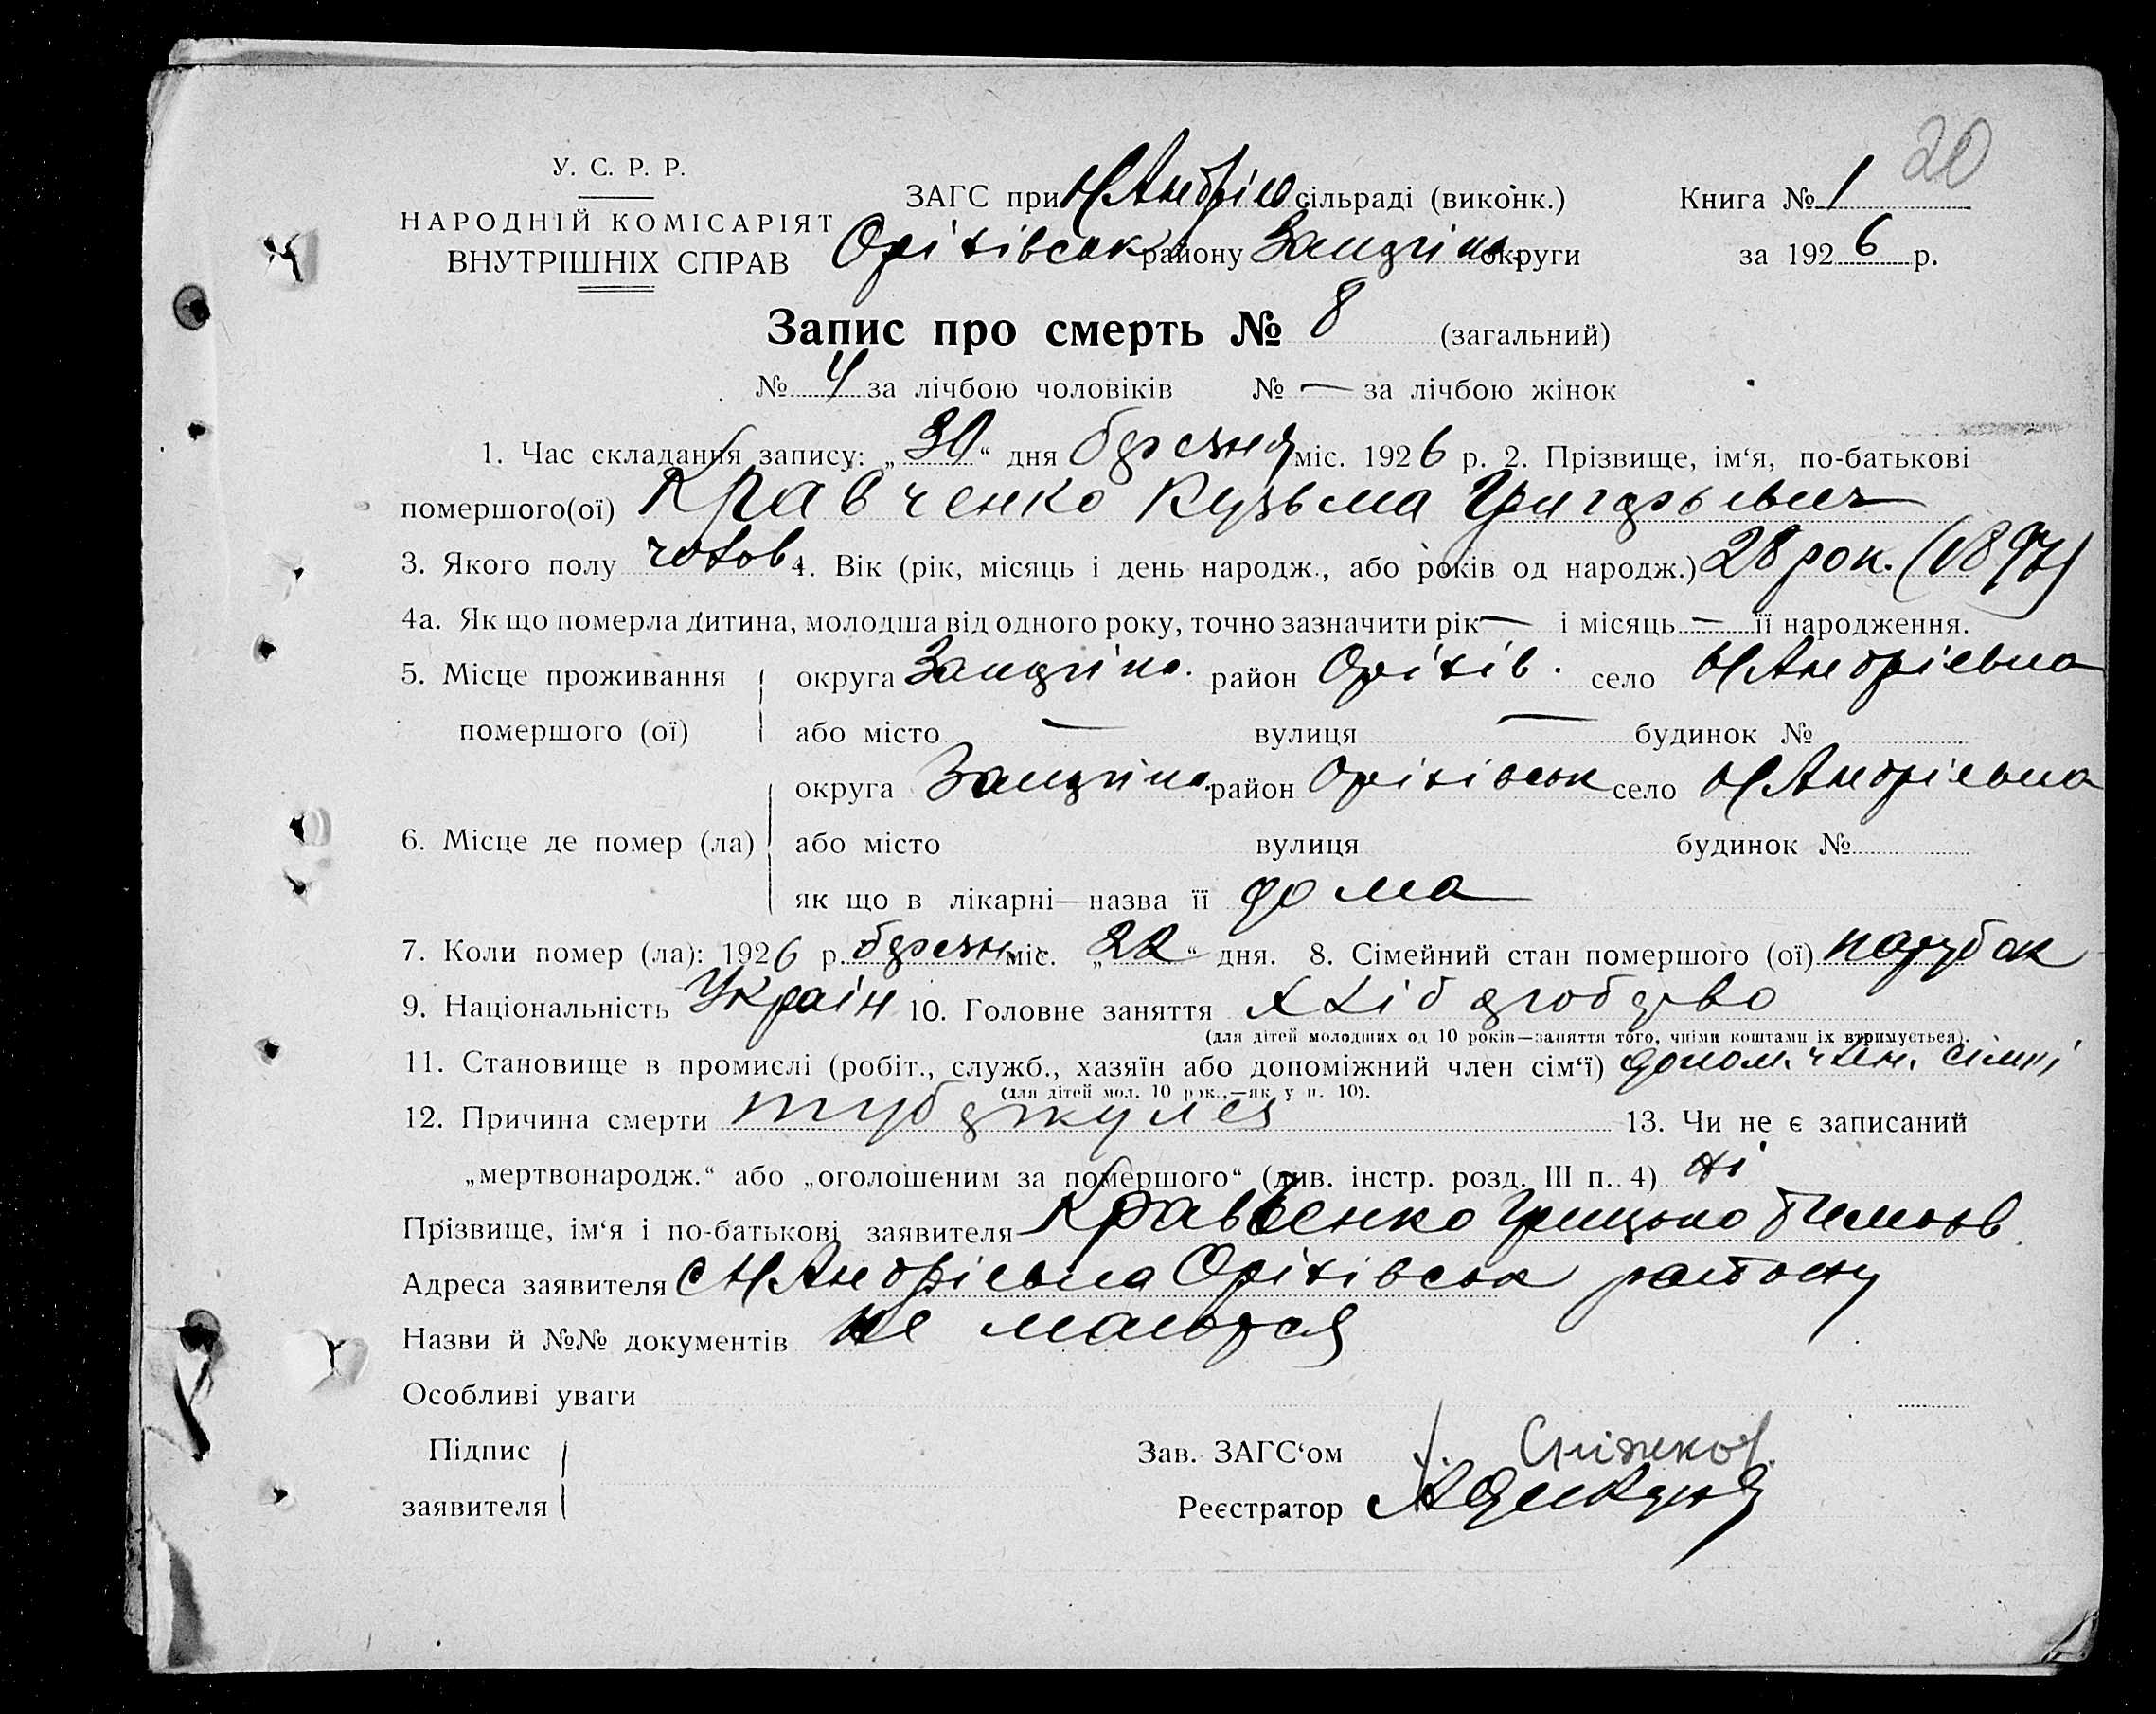 20
У. С. Р. Р.
НАРОДНІЙ КОМІСАРІЯТ
ВНУТРІШНІХ СПРАВ
ЗАГС при Н Андрієв сільраді (виконк.)
Книга № 1
Оріхівськ району Запоріж. округи
за 1926 р.
Запис про смерть № 8 (загальний)
№ 4 за лічбою чоловіків № — за лічбою жінок
1. Час складання запису: „30“ дня березня міс. 1926 р. 2. Прізвище, ім‘я, по-батькові
помершого(ої) Кравченко Кузьма Григорьевич
3. Якого полу чолов. 4. Вік (рік, місяць і день народж., або років од народж.) 28 рок. (1897)
4а. Як що померла дитина, молодша від одного року, точно зазначити рік — і місяць — її народження.
5. Місце проживання округа Запоріж. район Оріхів. село Н Андрієвка
помершого (ої) або місто — вулиця — будинок №
округа Запоріж. район Оріхівськ село Н Андрієвка
6. Місце де помер (ла) або місто вулиця будинок №
як що в лікарні—назва її дома
7. Коли помер (ла): 1926 р. березн. міс. „22“ дня. 8. Сімейний стан помершого (ої) парубок
9. Національність Україн 10. Головне заняття хліборобство
(для дітей молодших од 10 років—заняття того, чиїми коштами їх втримується).
11. Становище в промислі (робіт., служб., хазяїн або допоміжний член сім‘ї) допом. член. сімї
(для дітей мол. 10 рок.,—як у п. 10).
12. Причина смерти туберкулез 13. Чи не є записаний
„мертвонародж.“ або „оголошеним за помершого“ (див. інстр. розд. III п. 4) ні
Прізвище, ім‘я і по-батькові заявителя Кравченко Грицько
Адреса заявителя с Н Андрієвка Оріхівськ району
Назви й №№ документів не мається
Особливі уваги
Підпис
заявителя
Зав. ЗАГС‘ом Сніжков
Реєстратор